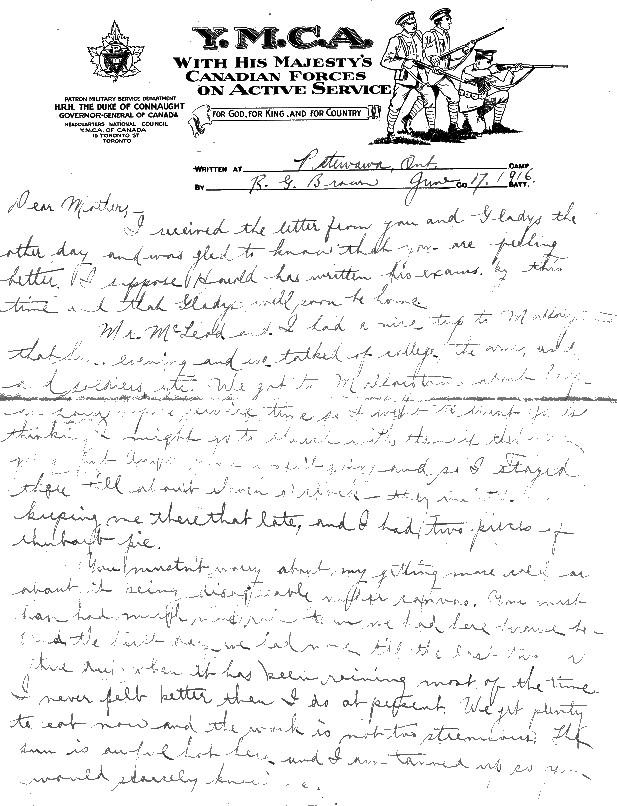 Y.M.C.A.
WITH HIS MAJESTY'S
CANADIAN FORCES
ON ACTIVE SERVICE
FOR GOD, FOR KING, AND FOR COUNTRY
PATRON MILITARY SERVICE DEPARTMENT
H.R.H. THE DUKE OF CONNAUGHT
GOVERNOR-GENERAL OF CANADA
HEADQUARTERS NATIONAL COUNCIL
Y.M.C.A. OF CANADA
15 TORONTO ST
TORONTO
WRITTEN AT Petewawa, Ont. CAMP
BY R. G. Brown June CO 17. 1916. BATT.
Dear Mother,-
I received the letter from you and Gladys the
other day and was glad to know that you are feeling
better. I suppose Harold has written his exams. by this
time and that Gladys will soon be home
Mr. McLeod and I had a nice trip to
that evening and we talked of college, the
etc. We got to about
time so I
thinking I might go to church with them
and so I stayed
there till about eleven o'clock - they
keeping me there that late, and I had two pieces of
rhubarb pie.
You mustn't worry about my getting more cold or
about it being disagreeable under canvas. You must
have had much more rain than we had here because
the first day we had none till the last two or
five days when it has been raining most of the time.
I never felt better than I do at present. We get plenty
to eat now and the work is not too strenuous. The
sun is awful hot here and I am tanned up so you
would scarcely know me.